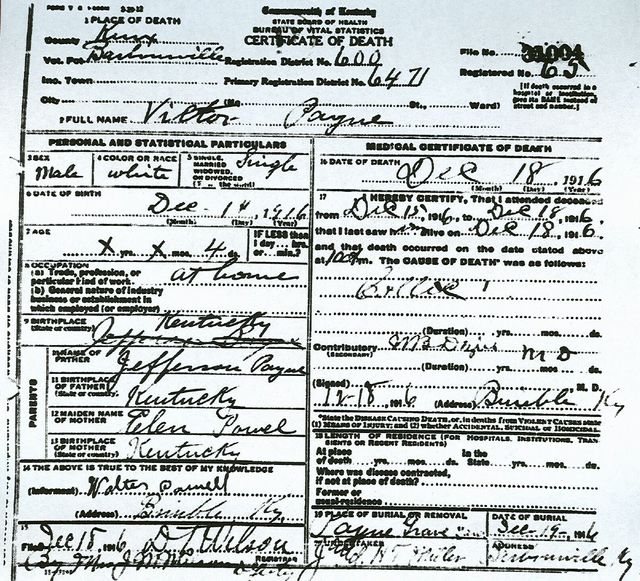 Commonwealth of Kentucky
STATE BOARD OF HEALTH
BUREAU OF VITAL STATISTICS
CERTIFICATE OF DEATH
1 PLACE OF DEATH
County Knox
Vot. Pct. Barbourville Registration District No. 600
File No. 31004
Inc. Town Primary Registration District No. 6471
Registered No. 65
[If death occurred in a hospital or institution, give its NAME instead of street and number.]
City (No. St., Ward)
2 FULL NAME Victor Payne
PERSONAL AND STATISTICAL PARTICULARS
3 SEX Male
4 COLOR OR RACE white
5 SINGLE, MARRIED, WIDOWED, OR DIVORCED Single
6 DATE OF BIRTH Dec 14, 1916
(Month) (Day) (Year)
7 AGE x yrs. x mos. 4 ds.
IF LESS than 1 day... hrs. or... min.?
8 OCCUPATION
(a) Trade, profession, or particular kind of work at home
(b) General nature of Industry business or establishment in which employed (or employer)
9 BIRTHPLACE (State or country) Kentucky
PARENTS
10 NAME OF FATHER Jefferson Payne
11 BIRTHPLACE OF FATHER (State or country) Kentucky
12 MAIDEN NAME OF MOTHER Elen Powel
13 BIRTHPLACE OF MOTHER (State or country) Kentucky
14 THE ABOVE IS TRUE TO THE BEST OF MY KNOWLEDGE
(Informant) Walter Powell
(Address) Ky.
15
Filed Dec 18, 1916 D T Wilson
REGISTRAR
MEDICAL CERTIFICATE OF DEATH
16 DATE OF DEATH Dec 18, 1916
(Month) (Day) (Year)
17 I HEREBY CERTIFY, That I attended deceased
from Dec 15, 1916, to Dec 18, 1916,
that I last saw him alive on Dec 18, 1916,
and that death occurred on the date stated above
at m. The CAUSE OF DEATH* was as follows:
(Duration) yrs. mos. ds.
Contributory
(SECONDARY)
(Duration) yrs. mos. ds.
(Signed) M. D.
12-18, 1916 (Address) Ky
*State the DISEASE CAUSING DEATH, or, in deaths from VIOLENT CAUSES state (1) MEANS OF INJURY; and (2) whether ACCIDENTAL, SUICIDAL or HOMICIDAL.
18 LENGTH OF RESIDENCE (FOR HOSPITALS, INSTITUTIONS, TRANSIENTS OR RECENT RESIDENTS)
At place of death yrs. mos. ds. In the State yrs. mos. ds.
Where was disease contracted, if not at place of death?
Former or usual residence
19 PLACE OF BURIAL OR REMOVAL Payne Grave
DATE OF BURIAL Dec 19, 1916
20 UNDERTAKER
ADDRESS Barbourville, Ky